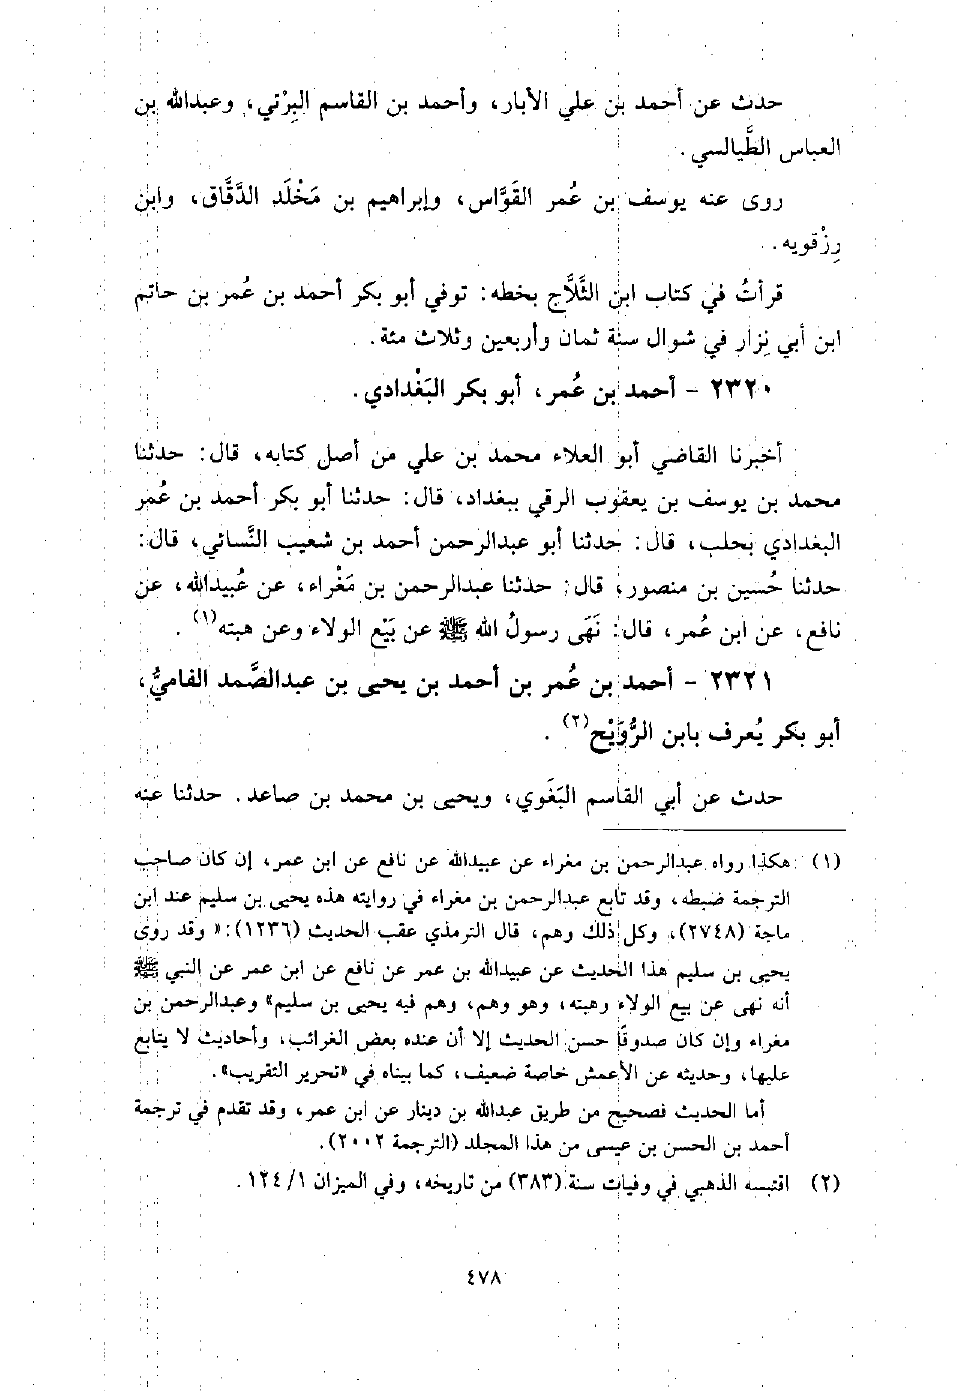 حدث عن أحمد بن علي الأبار، وأحمد بن القاسم البِرْتي، وعبدالله بن
العباس الطَّيالسي.
روى عنه يوسف بن عُمر القَوَّاس، وإبراهيم بن مَخْلَد الدَّقَّاق، وابن
رِزْقويه.
قرأتُ في كتاب ابن الثَّلاَّج بخطه: توفي أبو بكر أحمد بن عُمر بن حاتم
ابن أبي نِزار في شوال سنة ثمان وأربعين وثلاث مئة.
٢٣٢٠ - أحمد بن عُمر، أبو بكر البَغْدادي.
أخبرنا القاضي أبو العلاء محمد بن علي من أصل كتابه، قال: حدثنا
محمد بن يوسف بن يعقوب الرقي ببغداد، قال: حدثنا أبو بكر أحمد بن عُمر
البغدادي بحلب، قال: حدثنا أبو عبدالرحمن أحمد بن شعيب النَّسائي، قال:
حدثنا حُسين بن منصور، قال: حدثنا عبدالرحمن بن مَغْراء، عن عُبيدالله، عن
نافع، عن ابن عُمر، قال: نَهَى رسولُ الله ﷺ عن بَيْع الولاء وعن هبته(١).
٢٣٢١ - أحمد بن عُمر بن أحمد بن يحيى بن عبدالصَّمد الفاميُّ،
أبو بكر يُعرف بابن الرُّوَيْح(٢).
حدث عن أبي القاسم البَغَوي، ويحيى بن محمد بن صاعد. حدثنا عنه
(١) هكذا رواه عبدالرحمن بن مغراء عن عبيدالله عن نافع عن ابن عمر، إن كان صاحب
الترجمة ضبطه، وقد تابع عبدالرحمن بن مغراء في روايته هذه يحيى بن سليم عند ابن
ماجة (٢٧٤٨)، وكل ذلك وهم، قال الترمذي عقب الحديث (١٢٣٦): «وقد روى
يحيى بن سليم هذا الحديث عن عبيدالله بن عمر عن نافع عن ابن عمر عن النبي ﷺ
أنه نهى عن بيع الولاء وهبته، وهو وهم، وهم فيه يحيى بن سليم» وعبدالرحمن بن
مغراء وإن كان صدوقًا حسن الحديث إلا أن عنده بعض الغرائب، وأحاديث لا يتابع
عليها، وحديثه عن الأعمش خاصة ضعيف، كما بيناه في «تحرير التقريب».
أما الحديث فصحيح من طريق عبدالله بن دينار عن ابن عمر، وقد تقدم في ترجمة
أحمد بن الحسن بن عيسى من هذا المجلد (الترجمة ٢٠٠٢).
(٢) اقتبسه الذهبي في وفيات سنة (٣٨٣) من تاريخه، وفي الميزان ١/ ١٢٤.
٤٧٨